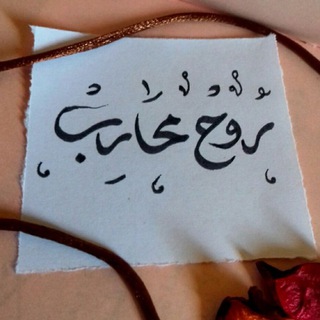 رُوحُ محَارِب